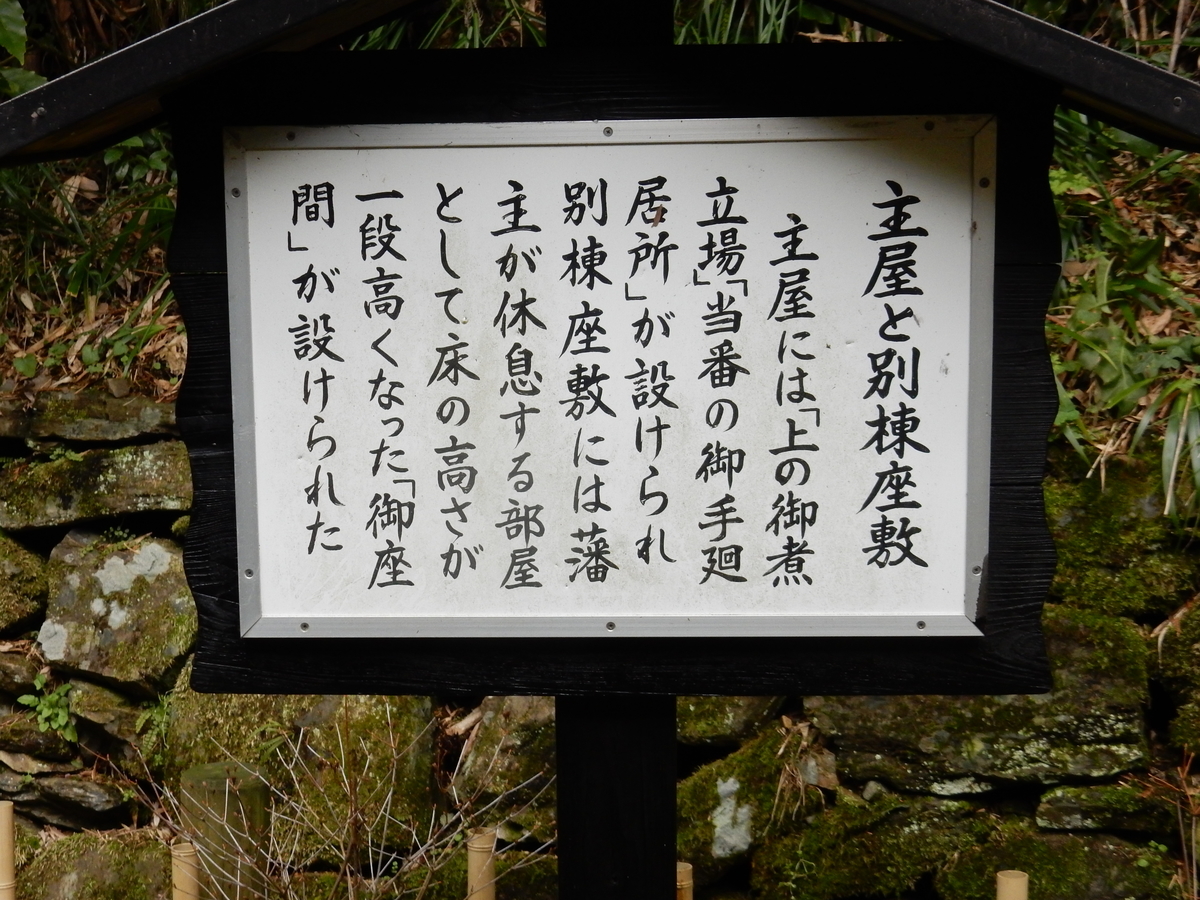 主屋と別棟座敷
主屋には「上の御煮
立場」「当番の御手廻
居所」が設けられ
別棟座敷には藩
主が休息する部屋
として床の高さが
一段高くなった「御座
間」が設けられた